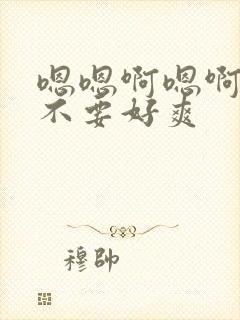 嗯嗯啊嗯啊
不要好爽
穆帥